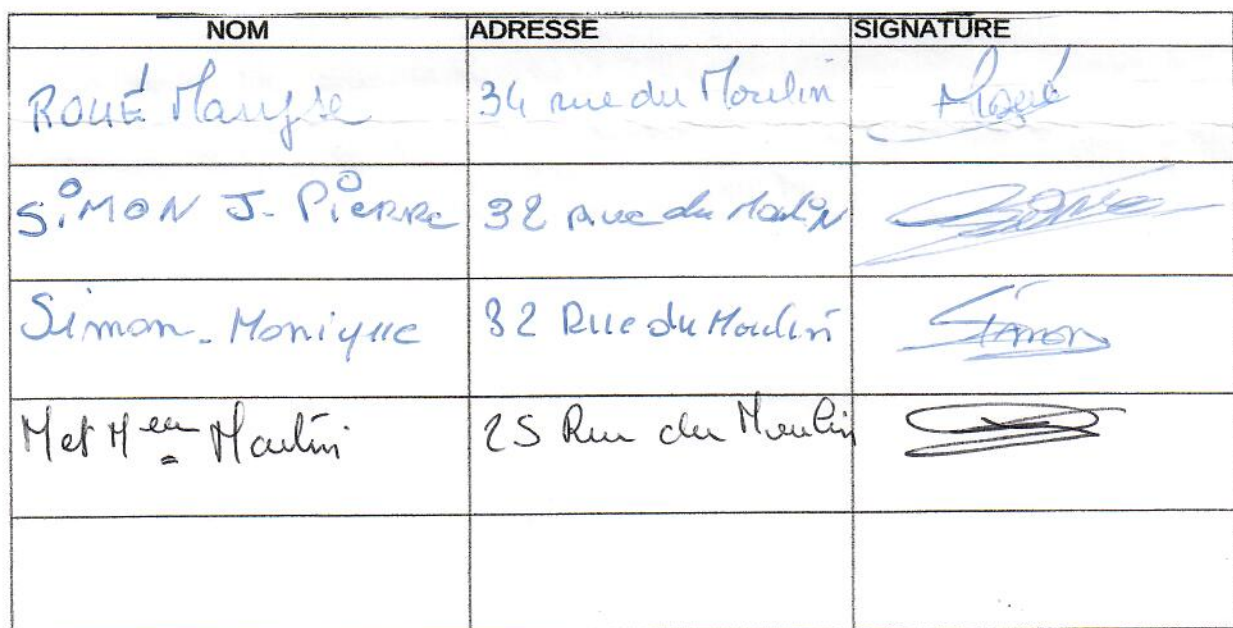 NOM ADRESSE SIGNATURE
ROUÉ Maryse 34 rue du Moulin Roué
SiMON J. PiERRE 32 Rue du Moulin
Simon-Monique 32 Rue du Moulin Simon
M et Mme Martin 25 Rue du Moulin